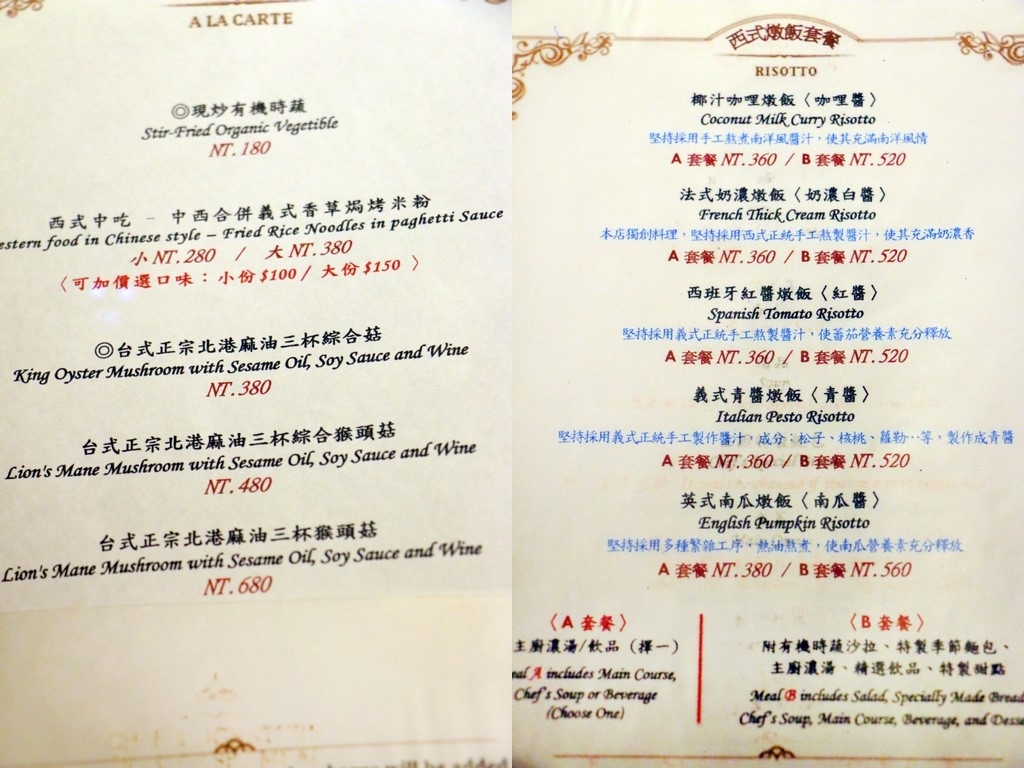 A LA CARTE
◎現炒有機時蔬
Stir-Fried Organic Vegetible
NT.180
西式中吃 – 中西合併義式香草焗烤米粉
estern food in Chinese style – Fried Rice Noodles in paghetti Sauce
小 NT.280 / 大 NT.380
〈可加價選口味：小份$100 / 大份$150 〉
◎台式正宗北港麻油三杯綜合菇
King Oyster Mushroom with Sesame Oil, Soy Sauce and Wine
NT.380
台式正宗北港麻油三杯綜合猴頭菇
Lion's Mane Mushroom with Sesame Oil, Soy Sauce and Wine
NT.480
台式正宗北港麻油三杯猴頭菇
Lion's Mane Mushroom with Sesame Oil, Soy Sauce and Wine
NT.680
will be added
西式燉飯套餐
RISOTTO
椰汁咖哩燉飯〈咖哩醬〉
Coconut Milk Curry Risotto
堅持採用手工熬煮南洋風醬汁，使其充滿南洋風情
A 套餐 NT.360 / B 套餐 NT.520
法式奶濃燉飯〈奶濃白醬〉
French Thick Cream Risotto
本店獨創料理，堅持採用西式正統手工熬製醬汁，使其充滿奶濃香
A 套餐 NT.360 / B 套餐 NT.520
西班牙紅醬燉飯〈紅醬〉
Spanish Tomato Risotto
堅持採用義式正統手工熬製醬汁，使蕃茄營養素充分釋放
A 套餐 NT.360 / B 套餐 NT.520
義式青醬燉飯〈青醬〉
Italian Pesto Risotto
堅持採用義式正統手工製作醬汁，成分：松子、核桃、蘿勒…等，製作成青醬
A 套餐 NT.360 / B 套餐 NT.520
英式南瓜燉飯〈南瓜醬〉
English Pumpkin Risotto
堅持採用多種繁雜工序，熱油熬煮，使南瓜營養素充分釋放
A 套餐 NT.380 / B 套餐 NT.560
〈A 套餐〉
主廚濃湯/飲品（擇一）
eal A includes Main Course,
Chef's Soup or Beverage
(Choose One)
〈B 套餐〉
附有機時蔬沙拉、特製季節麵包、
主廚濃湯、精選飲品、特製甜點
Meal B includes Salad, Specially Made Bread
Chef's Soup, Main Course, Beverage, and Desse